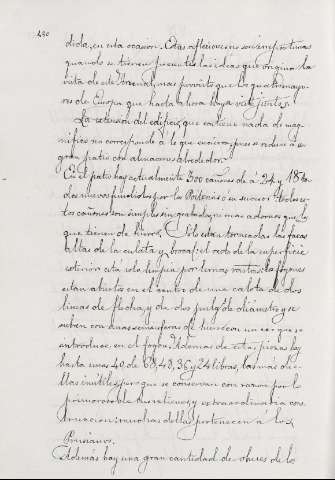 490
dida, en esta ocasion. Estas reflexiones son inoportunas
quando se tienen presentes las ideas que origina la
vista de este Arsenal, mas pronto que los quatro mayo-
res de Europa que hasta ahora hay existentes.
La extension del edificio que contiene nada de mag-
nifico no corresponde à lo que encierra, pues se reduce à un
gran patio con almacenes alrededor.
En el patio hay actualmente 300 cañones de à 24 y 18
de nuevos fundidos por la Potenas en Suecia. Todos es-
tos cañones son simples sin grabado, ni mas adornos que lo
que tienen de hierro. Solo estan torneadas las fajas
altas de la culata y broca; el resto de la superficie
esterior está solo limpia por limas vastas: los fogones
estan abiertos en el centro de una culata de dos
lineas de flecha, y de dos pulgs de diámetro y se
suben con unas semiesferas de hierro con un eje que se
introduce en el fogon. Ademas de estas piezas hay
hasta unas 40 de 68, 48, 36 y 24 libras, las mas de e-
llas inútiles, porque se conservan con razon por lo
primoroso de sus relieves y extraordinaria cons-
truccion: muchas de ellas pertenecen á los
Prusianos.
Además hay una gran cantidad de obuses de lo